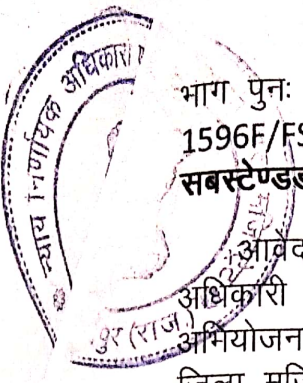 न्याय निर्णायक अधिकारी
भाग पुनः
1596F/FS
सबस्टेण्डड
आवेद
अधिकारी
पुर (राज.)
अभियोजन
जिला